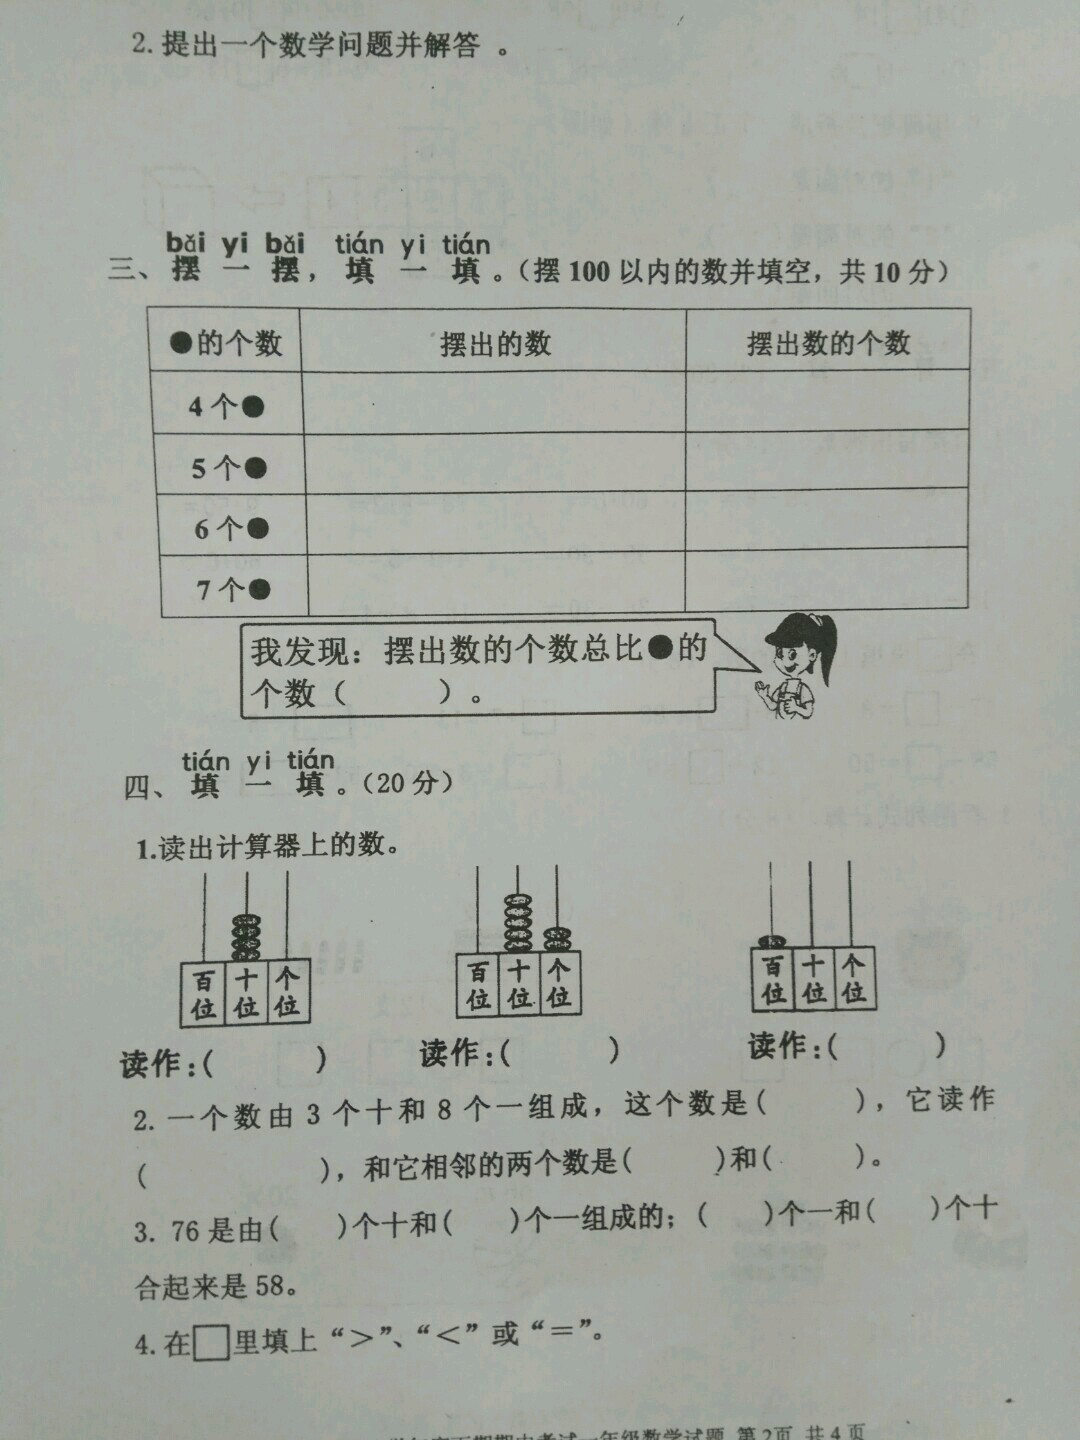 2. 提出一个数学问题并解答 。
bǎi yi bǎi tián yi tián
三、摆 一 摆，填 一 填。（摆 100 以内的数并填空，共 10 分）
●的个数 摆出的数 摆出数的个数
4 个●
5 个●
6 个●
7 个●
我发现：摆出数的个数总比●的
个数（ ）。
tián yi tián
四、填 一 填。（20 分）
1.读出计算器上的数。
百位 十位 个位 百位 十位 个位 百位 十位 个位
读作：( ) 读作：( ) 读作：( )
2. 一个数由 3 个十和 8 个一组成，这个数是( )，它读作
( )，和它相邻的两个数是( )和( )。
3. 76 是由( )个十和( )个一组成的；( )个一和( )个十
合起来是 58。
4. 在□里填上“＞”、“＜”或“＝”。
期中考试一年级数学试题 第2页 共4页